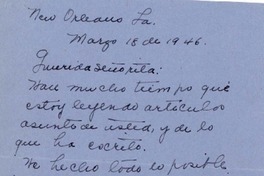 New Orleans La.
Marzo 18 de 1946.
Querida señorita:
Hace mucho tiempo que
estoy leyendo artículos
asunto de usted, y de lo
que ha escrito.
He hecho todo lo posible